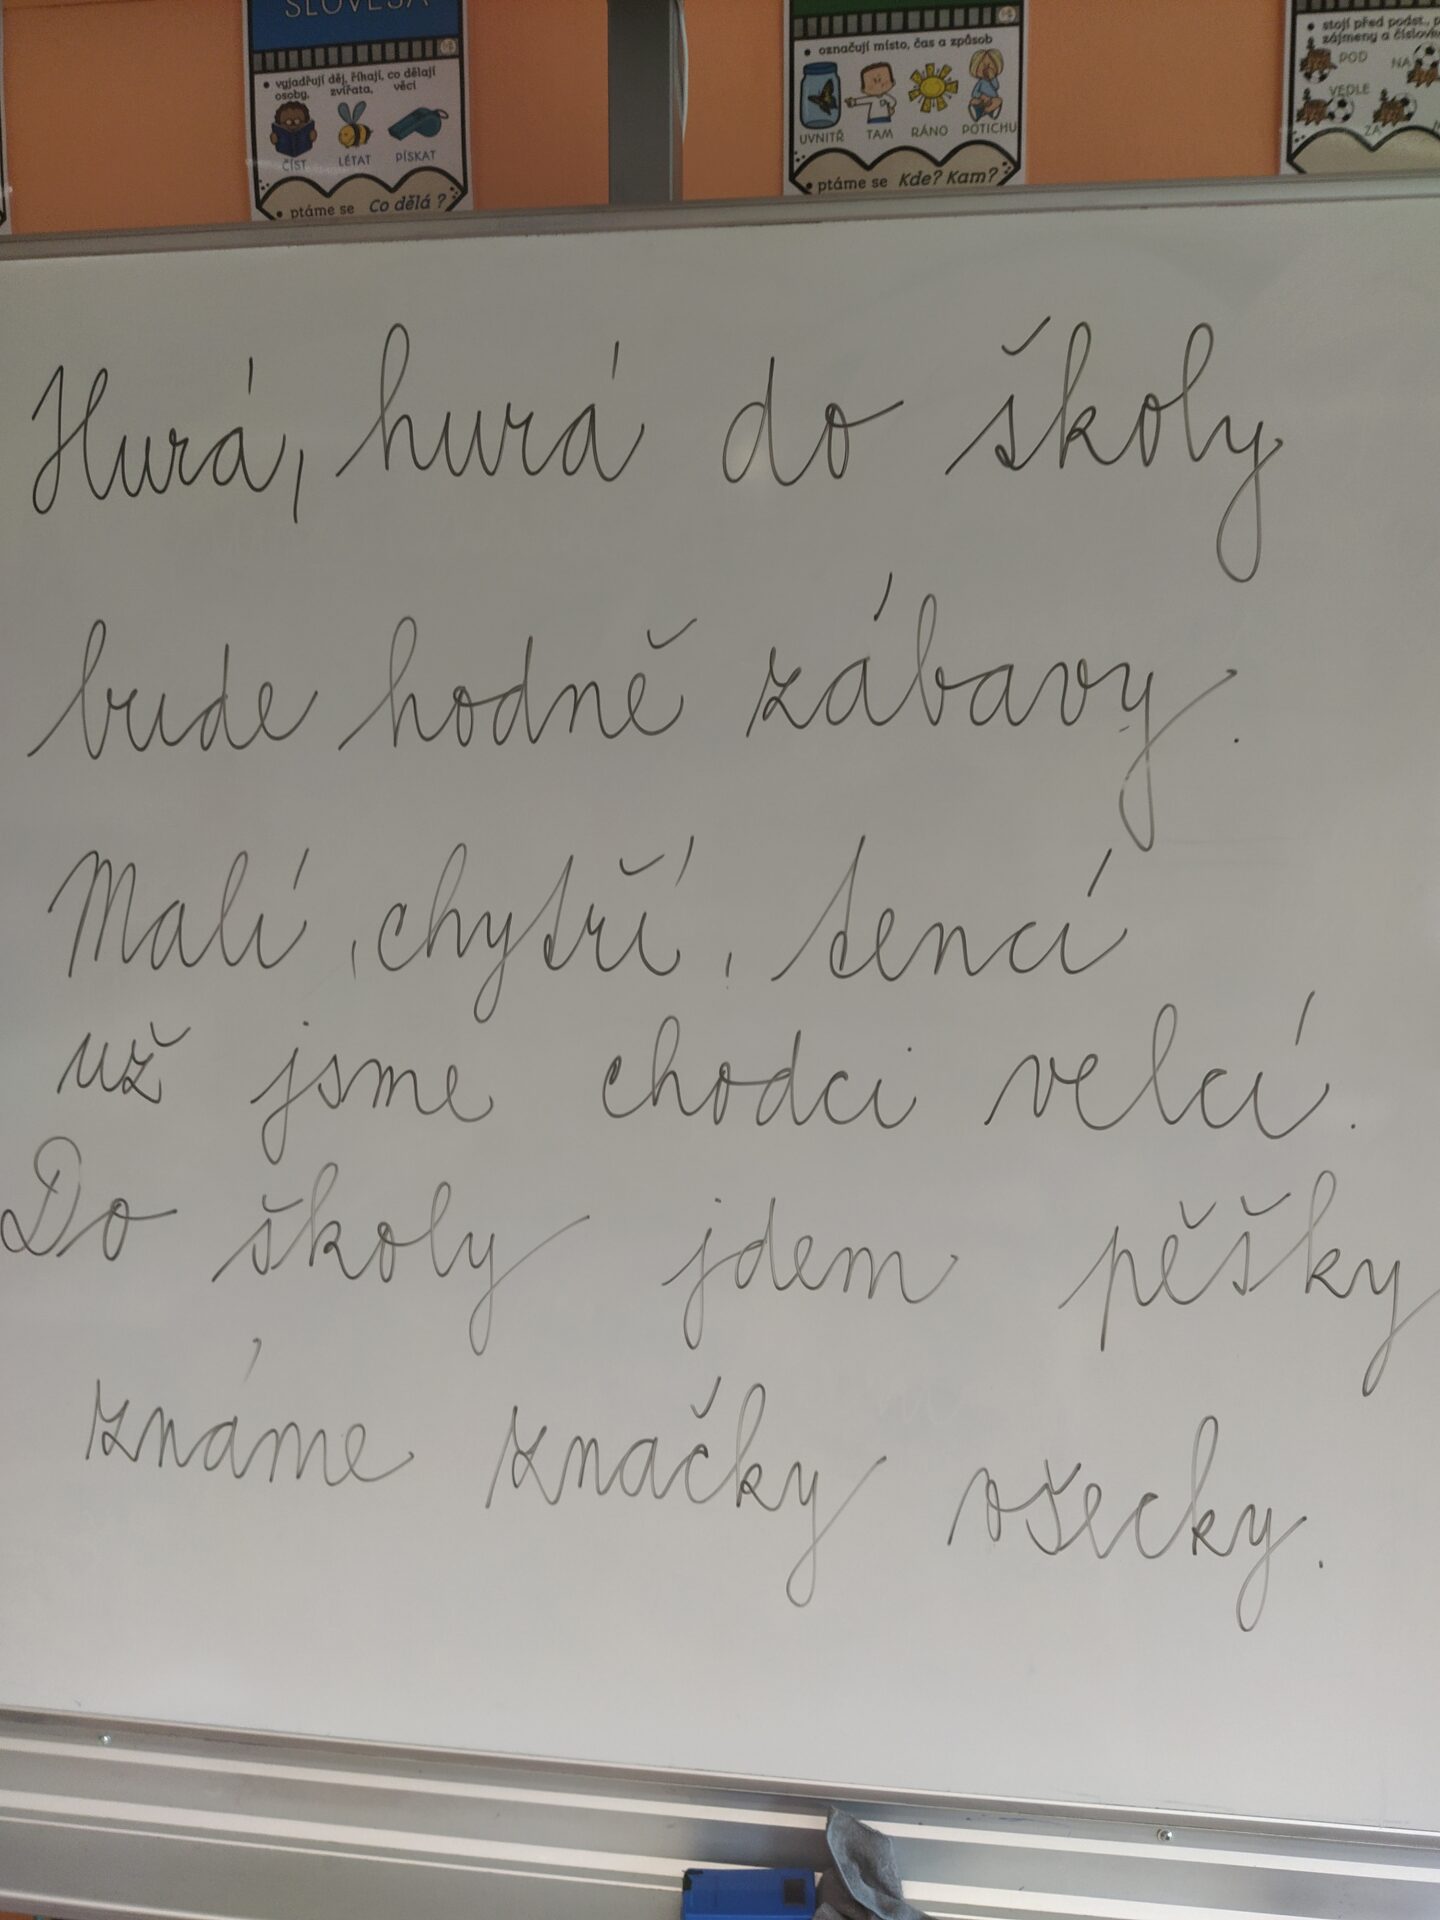 SLOVESA
• vyjadřují děj, říhají, co dělají
osoby, zvířata, věci
ČÍST LÉTAT PÍSKAT
• ptáme se Co dělá?
• označují místo, čas a způsob
UVNITŘ TAM RÁNO POTICHU
• ptáme se Kde? Kam?
• stojí před podst., p
zájmeny a číslov
POD NA
VEDLE
ZA
Hurá, hurá do školy
bude hodně zábavy.
Malí, chytří, tencí
už jsme chodci velcí.
Do školy jdem pěšky
známe značky všecky.